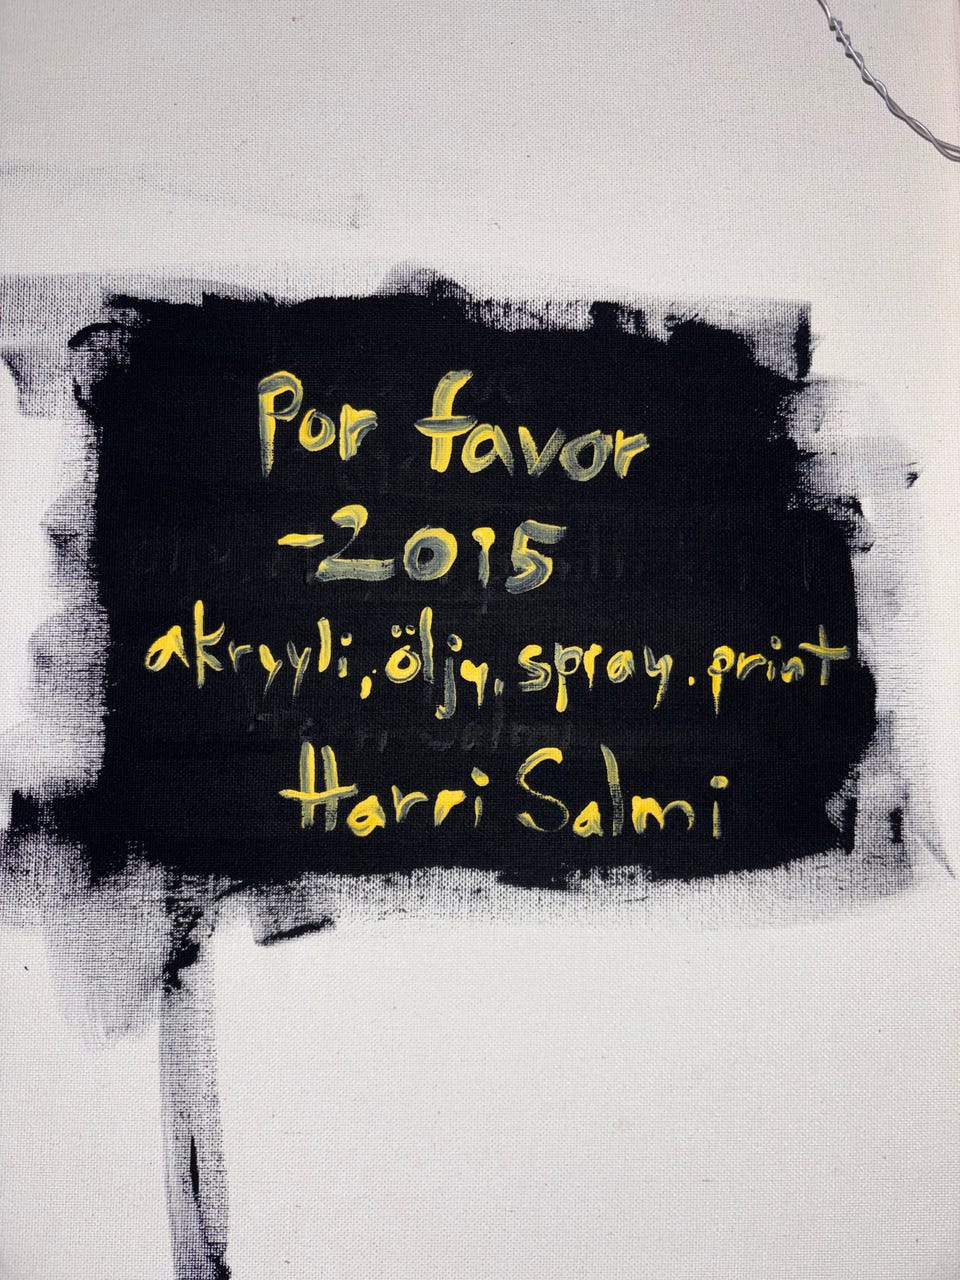 Por favor
-2015
akryyli, öljy, spray. print
Harri Salmi